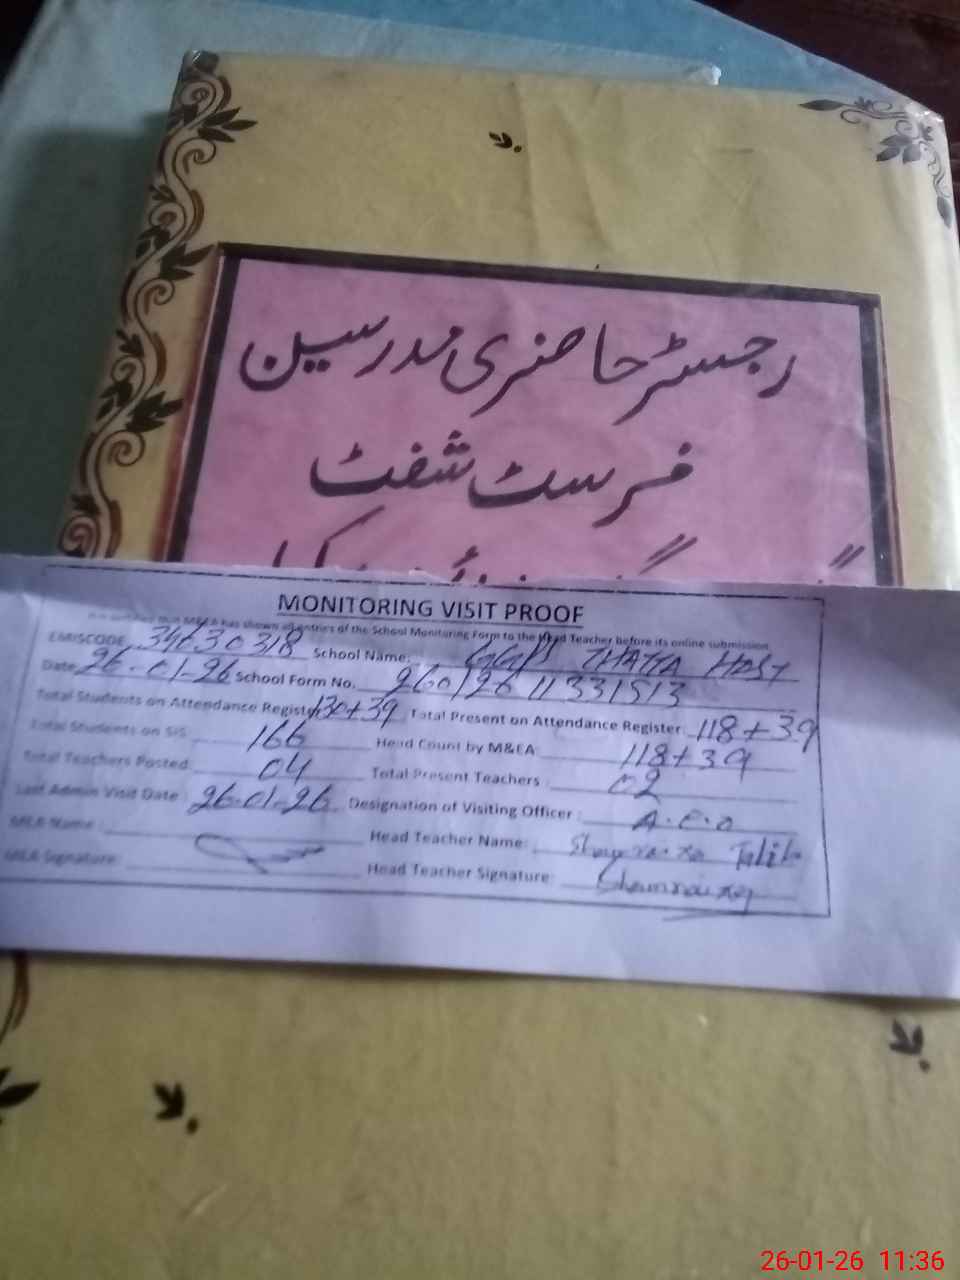 رجسٹر حاضری مدرسین
فرسٹ شفٹ
MONITORING VISIT PROOF
M&EA has shown all entries of the School Monitoring Form to the Head Teacher before its online submission
EMISCODE 34630318 School Name: GGPS THATTA
Date 26-01-26 School Form No. 26012611331513
Total Students on Attendance Register 130+39 Total Present on Attendance Register: 118+39
Total Students on SIS 166 Head Count by M&EA: 118+39
Total Teachers Posted 04 Total Present Teachers: 02
Last Admin Visit Date: 26-01-26 Designation of Visiting Officer: A.E.O
MEA Name: Head Teacher Name: Talib
MEA Signature: Head Teacher Signature:
26-01-26 11:36